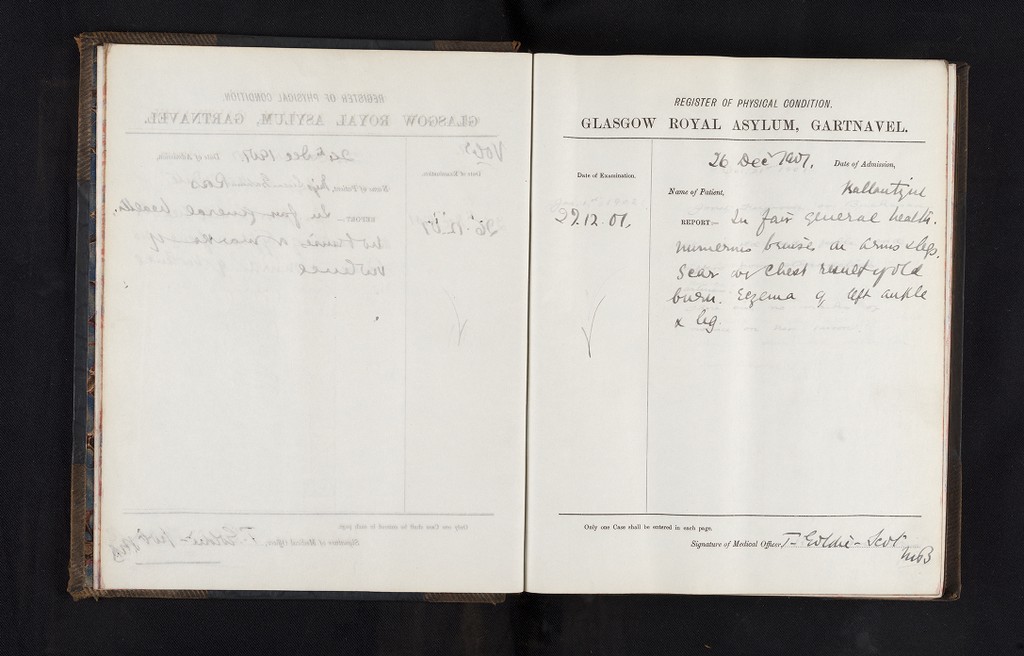 REGISTER OF PHYSICAL CONDITION.
GLASGOW ROYAL ASYLUM, GARTNAVEL.
26 Dec 1901. Date of Admission,
Date of Examination.
Name of Patient, Ballantyne
29.12.01. REPORT:— In fair general health.
numerous bruises on arms & legs.
Scar over chest result of old
burn. Eczema of left ankle
& leg.
Only one Case shall be entered in each page.
Signature of Medical Officer, T- Goldie- Scot
MB